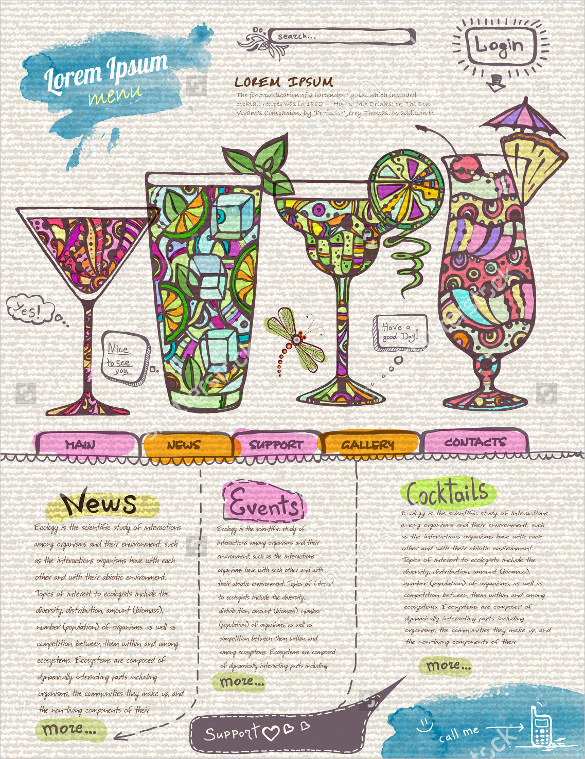 Lorem Ipsum
menu
search...
Login
LOREM IPSUM
Yes!
Nice
to see
you
Have a
good Day!
MAIN
NEWS
SUPPORT
GALLERY
CONTACTS
News
Ecology is the scientific study of interactions
among organisms and their environment, such
as the interactions organisms have with each
other and with their abiotic environment.
Topics of interest to ecologists include the
diversity, distribution, amount (biomass),
number (population) of organisms, as well as
competition between them within and among
ecosystems. Ecosystems are composed of
dynamically interacting parts including
organisms, the communities they make up, and
the non-living components of their
more...
Events
Ecology is the scientific study of interactions
among organisms and their
environment, such as the interactions
organisms have with each other and with
their abiotic environment. Topics of interest
to ecologists include the diversity,
distribution, amount (biomass), number
(population) of organisms, as well as
competition between them within and
among ecosystems. Ecosystems are composed
of dynamically interacting parts including
more...
Cocktails
Ecology is the scientific study of interactions
among organisms and their environment, such
as the interactions organisms have with each
other and with their abiotic environment.
Topics of interest to ecologists include the
diversity, distribution, amount (biomass),
number (population) of organisms, as well as
competition between them within and among
ecosystems. Ecosystems are composed of
dynamically interacting parts including
organisms, the communities they make up, and
the non-living components of their
more...
Support
call me